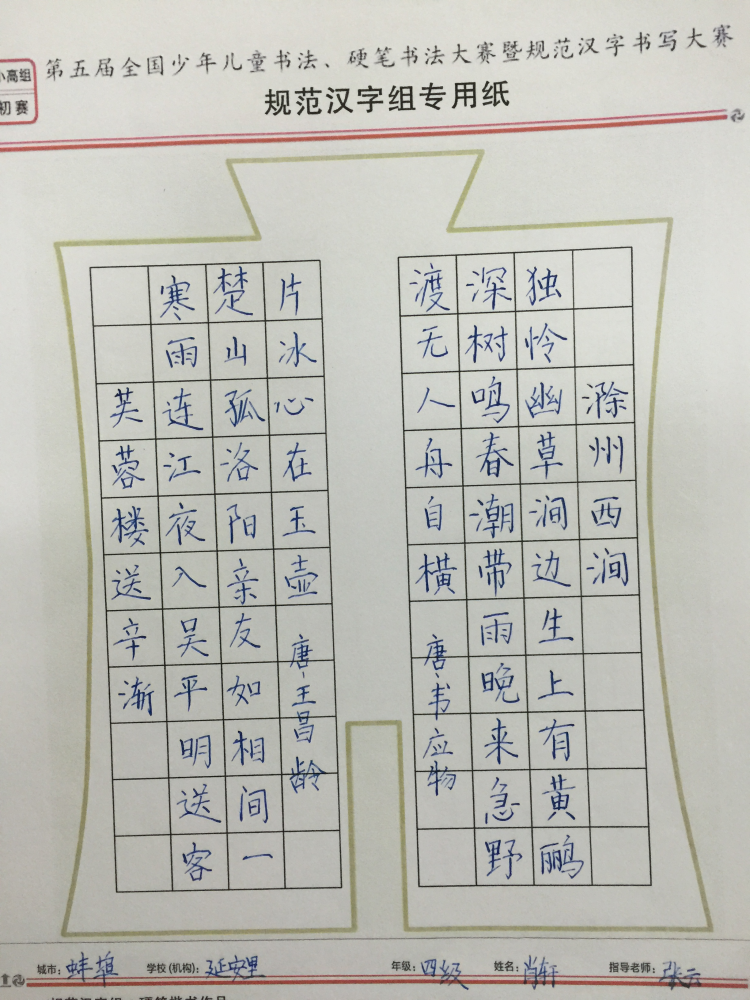 小高组
初赛
第五届全国少年儿童书法、硬笔书法大赛暨规范汉字书写大赛
规范汉字组专用纸
滁州西涧
独怜幽草涧边生上有黄鹂
深树鸣春潮带雨晚来急野
渡无人舟自横唐·韦应物
芙蓉楼送辛渐
寒雨连江夜入吴平明送客
楚山孤洛阳亲友如相间一
片冰心在玉壶唐·王昌龄
城市：蚌埠 学校(机构)：延安里 年级：四级 姓名：肖轩 指导老师：张云